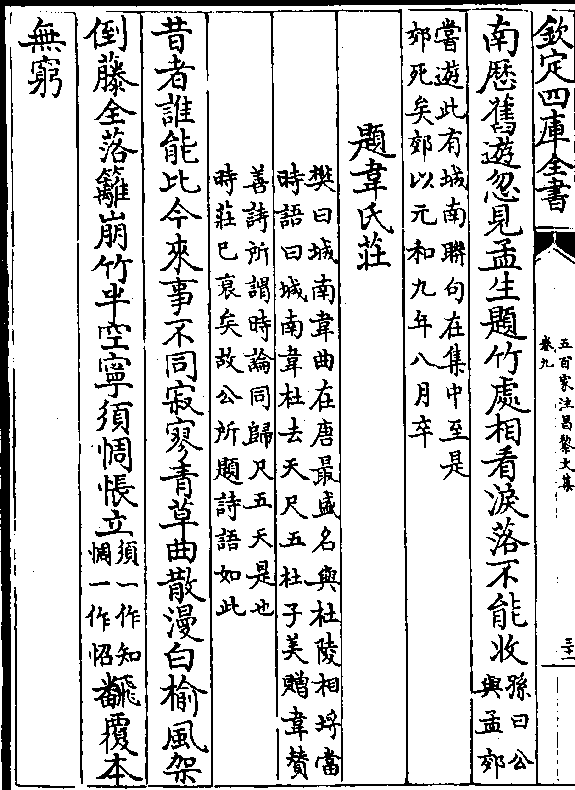 欽定四庫全書
五百家注昌黎文集
卷九
南歷舊遊忽見孟生題竹處相看淚落不能收孫曰公
與孟郊
嘗遊此有城南聯句在集中至是
郊死矣郊以元和九年八月卒
題韋氏莊
樊曰城南韋曲在唐最盛名與杜陵相埒當
時語曰城南韋杜去天尺五杜子美贈韋贊
善詩所謂時論同歸尺五天是也
時莊已衰矣故公所題詩語如此
昔者誰能比今來事不同寂寥青草曲散漫白榆風架
倒藤全落籬崩竹半空寧須惆悵立須一作知
惆一作怊飜覆本
無窮